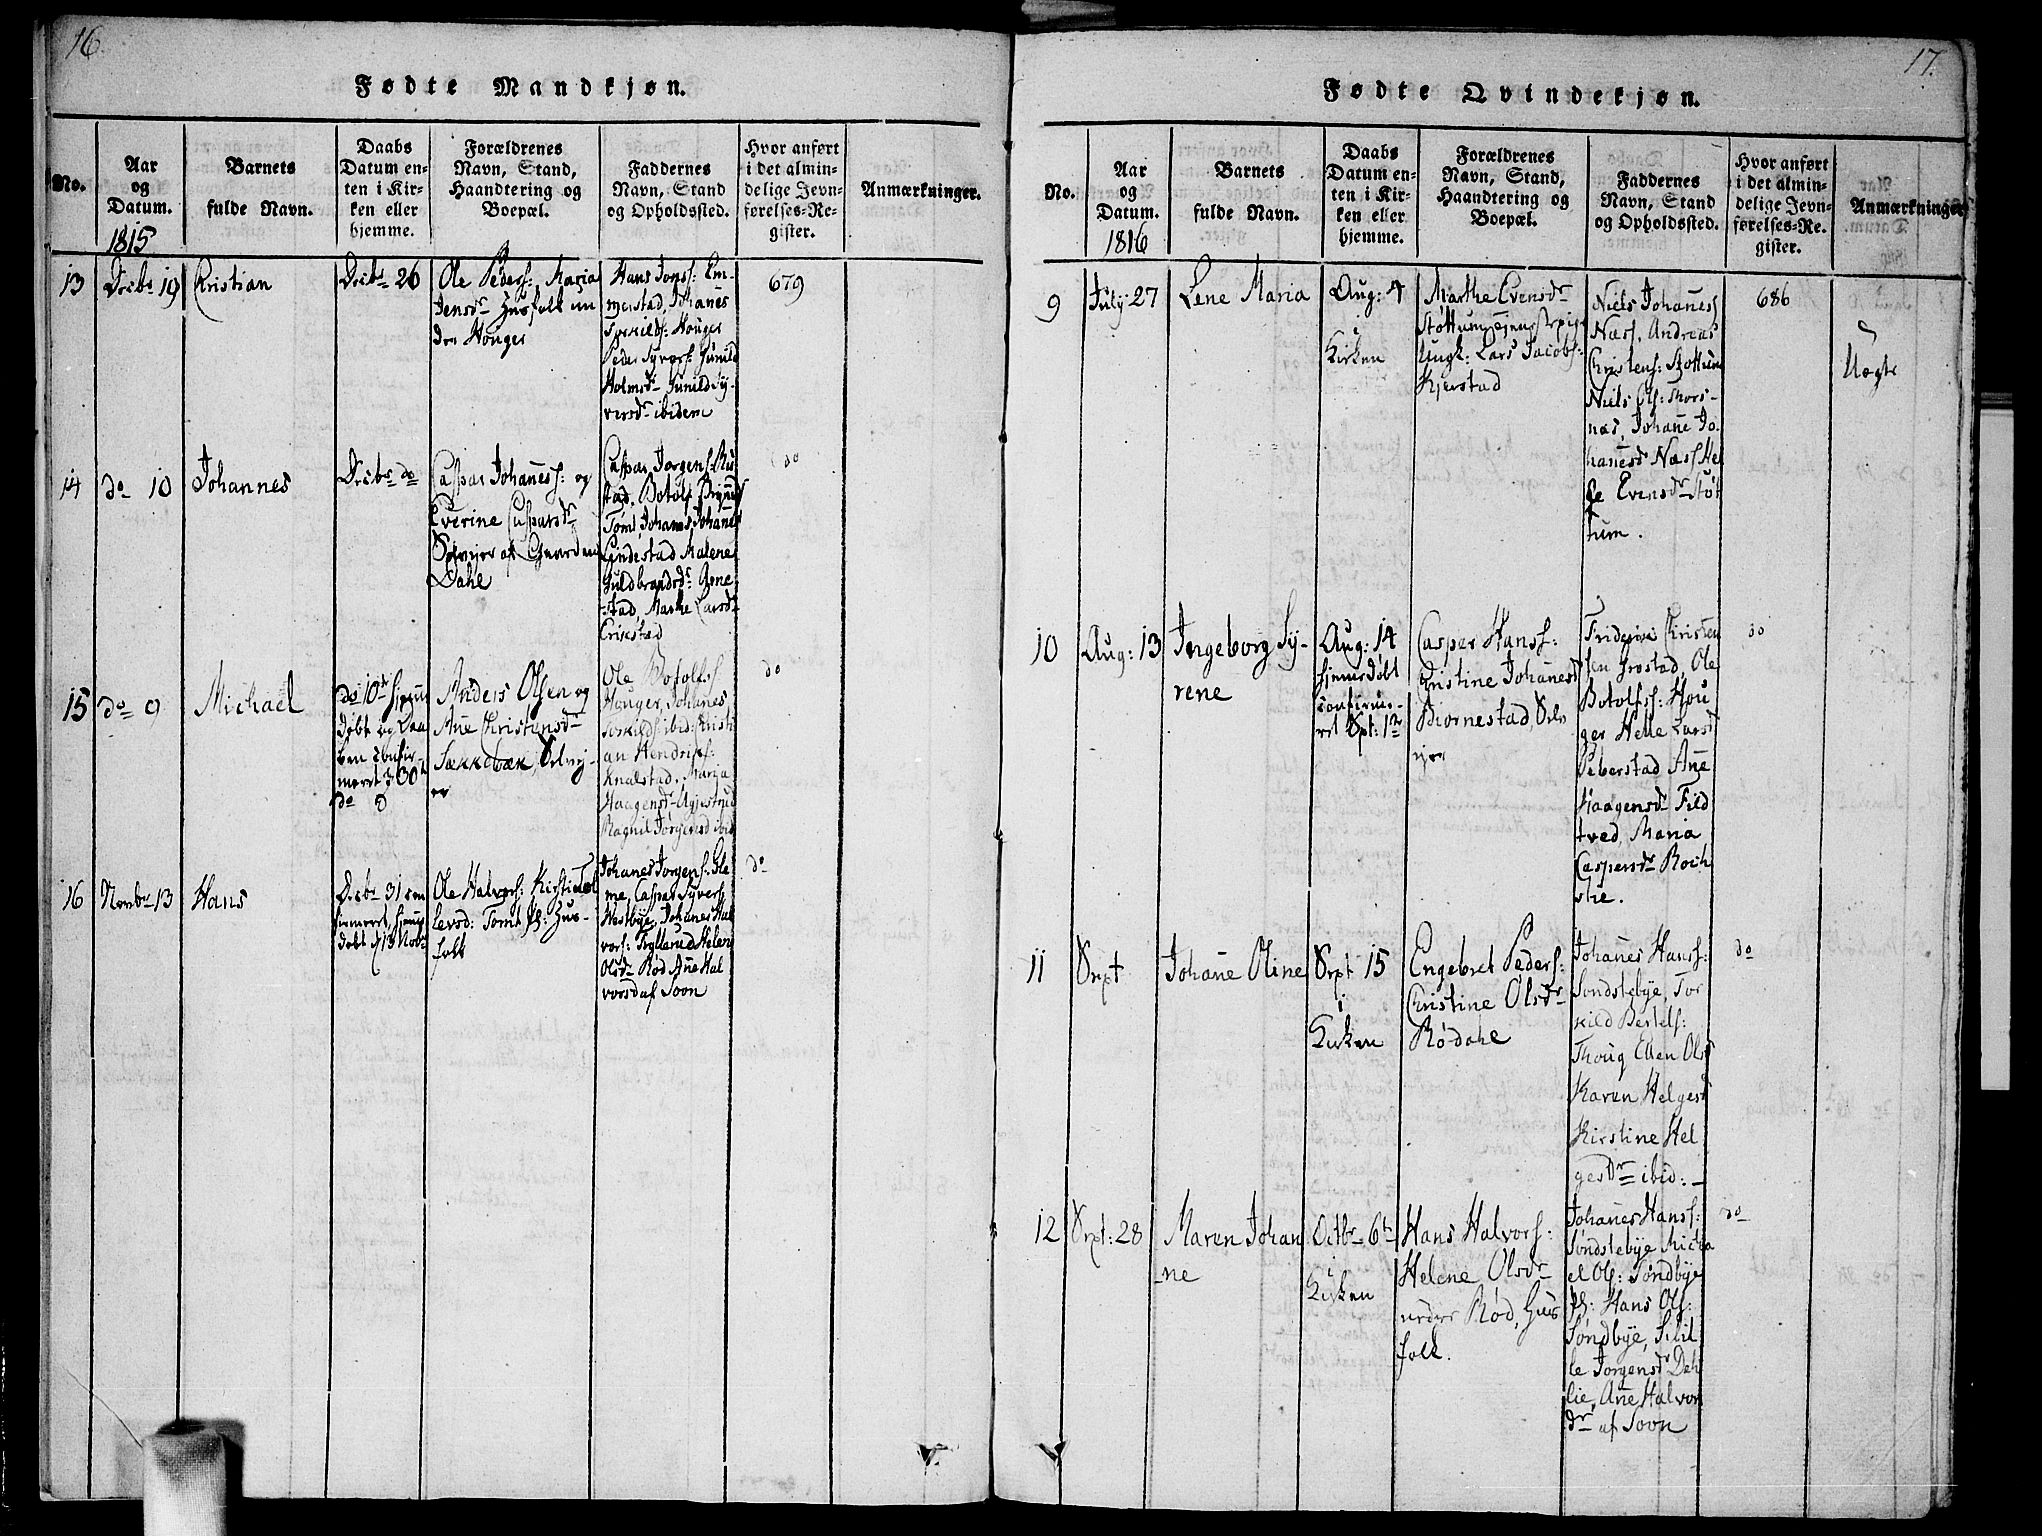 16
Fødte Mandkjøn.
No.
Aar
og
Datum.
1815
Barnets
fulde Navn.
Daabs
Datum en-
ten i Kir-
ken eller
hjemme.
Forældrenes
Navn, Stand,
Haandtering og
Boepæl.
Faddernes
Navn, Stand
og Opholdssted.
Hvor anført
i det almin-
delige Jevn-
førelses-Re-
gister.
Anmærkninger.
13
Decbr 19
Kristian
Decbr 26
Ole Peders: Maria
Jensdr Husfolk un
der Houger
Hans Jonss:
Johanes
Houger
Peder Syvers: Gunild
Holmsdr Gunild Sy-
versdr ibidem
679
14
do 10
Johannes
Decbr do
Caspar Johaness: og
Everine Caspersdr
af Gaarden
Dahl
Caspar Jorgens: Ru
stad, Botolf
Tomt, Johanes Johanes
Lindestad Malene
Guldbrandsdr
stad, Marthe Larsdr
Erikstad
do
15
do 9
Michael
do 10de hjemme
døbt og Daa
ben confir
meret d 30te
do
Anders Olsen og
Ane Christensdr
Sækkebæk, Selvej-
er
Ole Botolfss
Houger, Johanes
Torkilds: ibid: Kristi
an Hendrikss:
Knalstad, Maria
Haagensdr
Ragnil Jørgensd ibid
do
16
Novbr 13
Hans
Decbr 31 con
firmeret, hjemme
døbt d 13 Nobr
Ole Halvors: Kirstie
levsd: Tomt Pl: Hus-
folk
Johanes Jorgens: Gle
me, Caspar Syvers
Westbye, Johanes Hal
vors: Helene
Olsdr Rød Ane Hal
vorsd af Soon
do
17.
Fødte Qvindekjøn.
No.
Aar
og
Datum.
1816
Barnets
fulde Navn.
Daabs
Datum en-
ten i Kir-
ken eller
hjemme.
Forældrenes
Navn, Stand,
Haandtering og
Boepæl.
Faddernes
Navn, Stand
og Opholdssted.
Hvor anført
i det almin-
delige Jevn-
førelses-Re-
gister.
Anmærkninger
9
July 27
Lene Maria
Aug: 4
i
Kirken
Marthe Evensdr
Støttum
Ungk: Lars Jacobs:
Kjerstad
Niels Johaness
Næss, Andreas
Christens: Støttum
Niels Ols: Mors-
næs, Johane Jo
hanesd Næss Hel
le Evensdr Støt
tum.
686
Uægte
10
Aug: 13
Ingeborg Sy-
rene
Aug: 14
hjemmedøbt
confirme-
ret Sept: 1te
Caspar Hanss:
Cristine Johanesd
Bjornestad, Selv
ejer
Friderik Christen
sen Ole
Botolfss: Hou
ger Helle Larsd
Peberstad Ane
Haagensdr Fild
tved, Maria
Caspersdr Roch
stie.
do
11
Sept
Johane Oline
Sept 15
i
Kirken
Engebret Peders:
Christine Olsdr
Rø-dahl
Johanes Hanss:
Sondstebye, Tor
kild Bertels:
Thoug Ellen Olsd
Karen Helgesd
Kirstine Hel
gesdr ibid: —
do
12
Sept: 28
Maren Johan
-ne
Octbr 6te
i
Kirken
Hans Halvors:
Helene Olsdr
under Rød, Hus
folk.
Johanes Hanss:
Sondstebye Micha
el Ols: Sondbye
Pl: Hans Ols:
Sondbye, Sibil
le Jorgensdr Deh
lie, Ane Halvors
dr af Soon
do